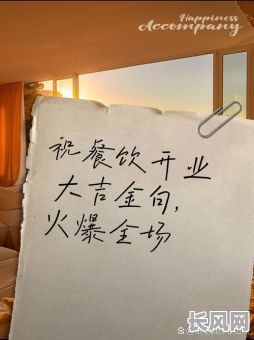 Happiness
Accompany
祝餐饮开业
大吉金句，
火爆全场
长风网